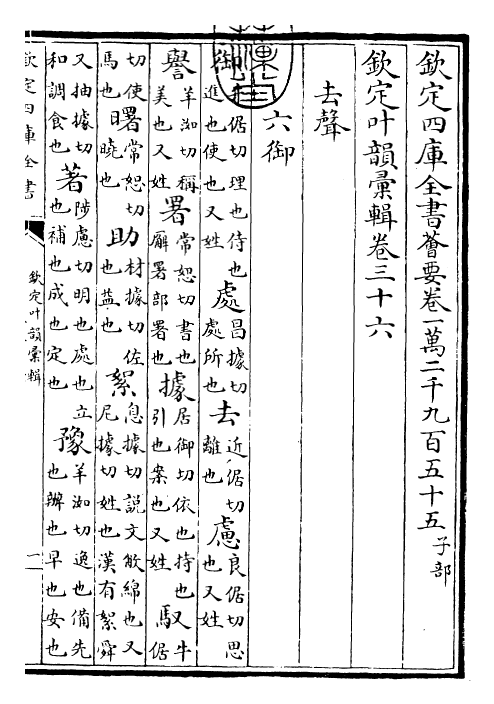 欽定四庫全書薈要卷一萬二千九百五十五 子部
欽定叶韻彚輯卷三十六
去聲
六御
御 倨切理也侍也進也使也又姓 處 昌據切處所也 去 近倨切離也 慮 良倨切思也又姓
譽 羊洳切稱美也又姓 署 常恕切書也廨署部署也 據 居御切依也持也引也案也又姓 馭 牛倨
切使馬也 曙 常恕切曉也 助 材據切佐也益也 絮 息據切說文敝綿也又尼據切姓也漢有絮舜
又抽據切和調食也 著 陟慮切明也處也立也補也成也定也 豫 羊洳切逸也備先也辦也早也安也
欽定四庫全書
欽定叶韻彚輯
一